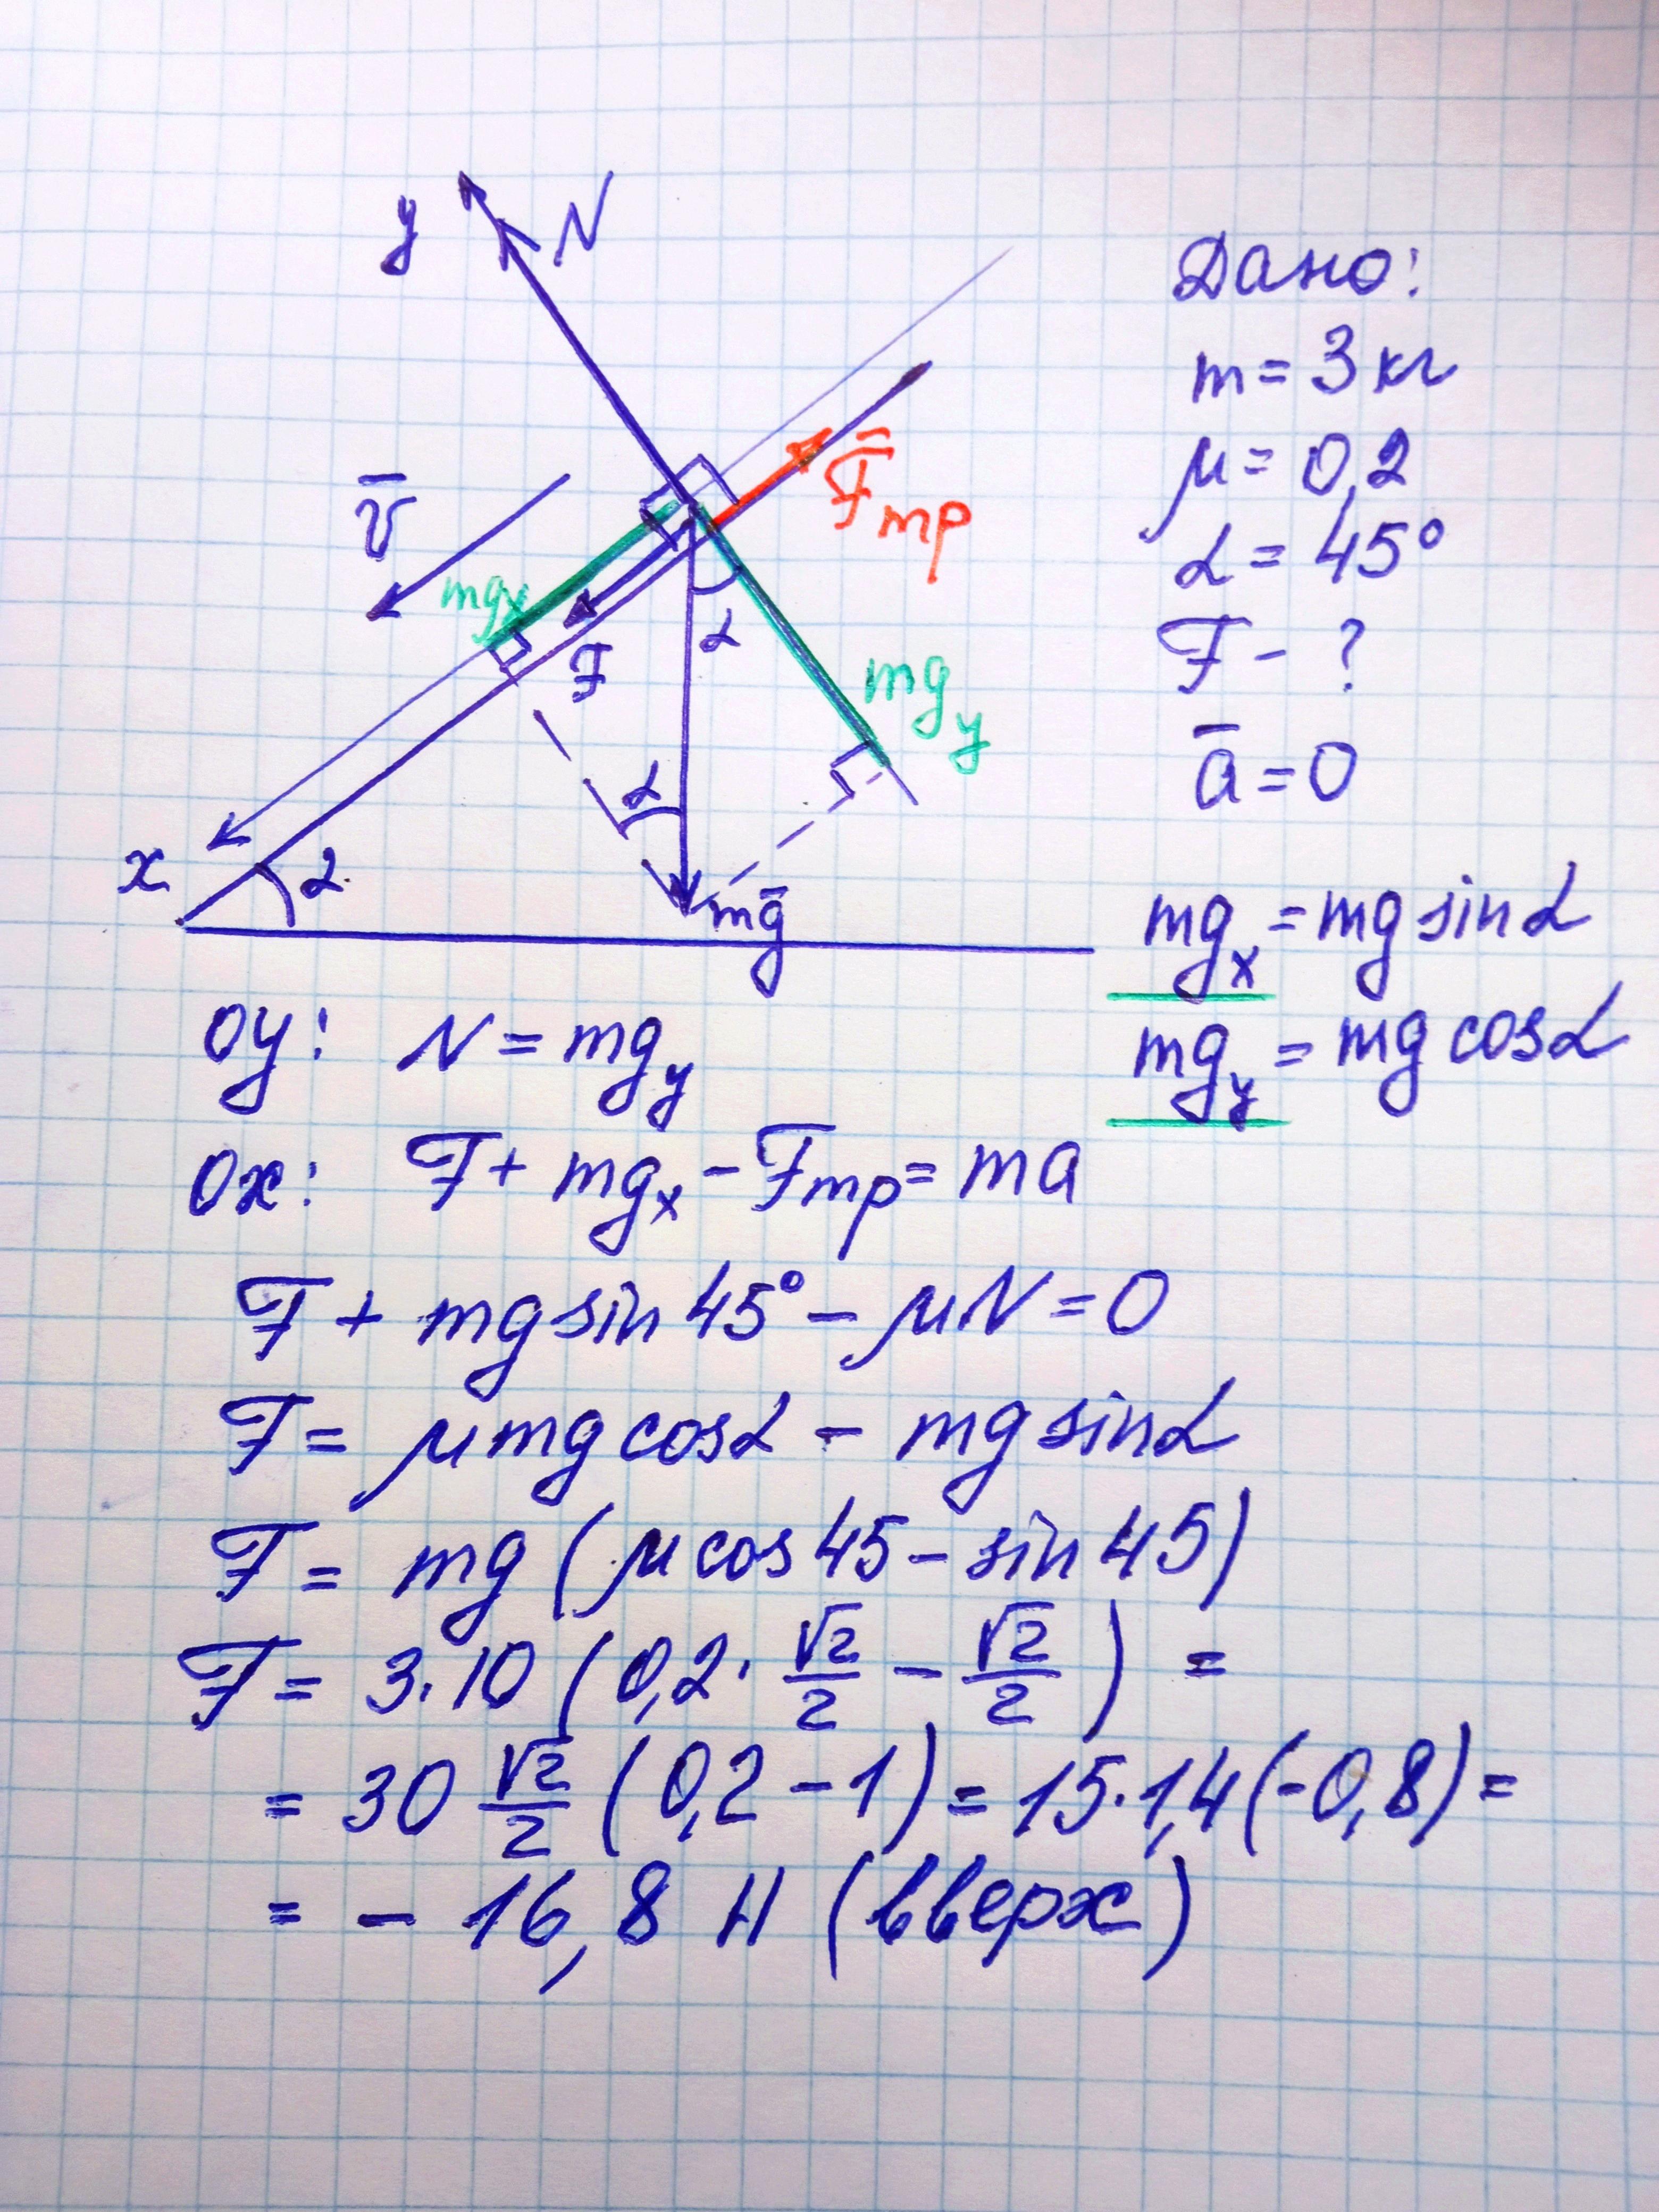 y
N
v̄
F̄тр
mgx
F
α
mgy
α
x
α
mḡ
Дано:
m = 3 кг
μ = 0,2
α = 45°
F - ?
ā = 0
mgx = mg sin α
mgy = mg cos α
Oy: N = mgy
Ox: F + mgx - Fтр = ma
F + mg sin 45° - μN = 0
F = μmg cos α - mg sin α
F = mg (μ cos 45 - sin 45)
F = 3·10 (0,2·√2/2 - √2/2) =
= 30 √2/2 (0,2 - 1) = 15·1,4 (-0,8) =
= - 16,8 Н (вверх)